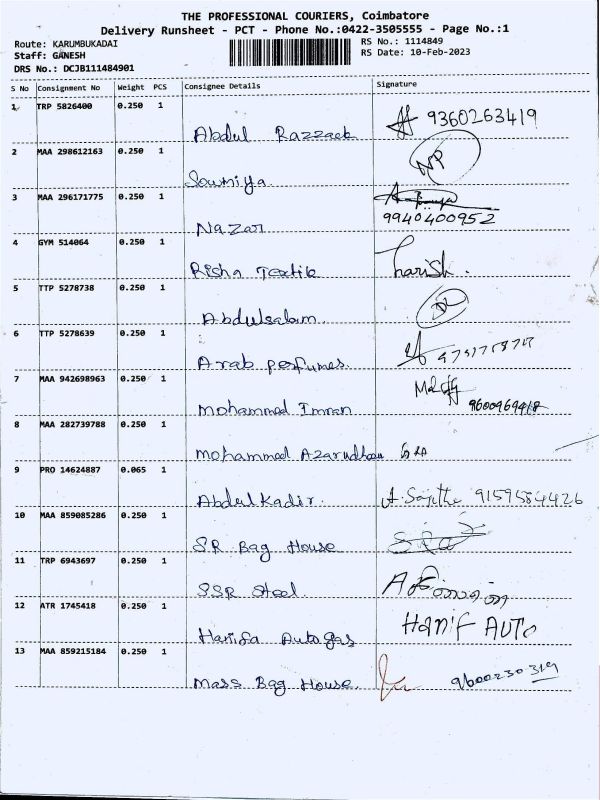 THE PROFESSIONAL COURIERS, Coimbatore
Delivery Runsheet - PCT - Phone No.:0422-3505555 - Page No.:1
Route: KARUMBUKADAI RS No.: 1114849
Staff: GANESH RS Date: 10-Feb-2023
DRS No.: DCJB111484901
S No Consignment No Weight PCS Consignee Details Signature
1 TRP 5826400 0.250 1 Abdul Razzack 9360263419
2 MAA 298612163 0.250 1 Soumiya NP
3 MAA 296171775 0.250 1 Nazar 9940400952
4 GYM 514064 0.250 1 Risha Textile Harish.
5 TTP 5278738 0.250 1 Abdulsalam DL
6 TTP 5278639 0.250 1 Arab perfumes
7 MAA 942698963 0.250 1 Mohammed Imran 9600969418
8 MAA 282739788 0.250 1 Mohammed Azarudheen
9 PRO 14624887 0.065 1 Abdulkadir. 9159584426
10 MAA 859085286 0.250 1 SR Bag House
11 TRP 6943697 0.250 1 SSR Steel
12 ATR 1745418 0.250 1 Hanifa Autogas HANIF AUTO
13 MAA 859215184 0.250 1 Mass Bag House 9600230319